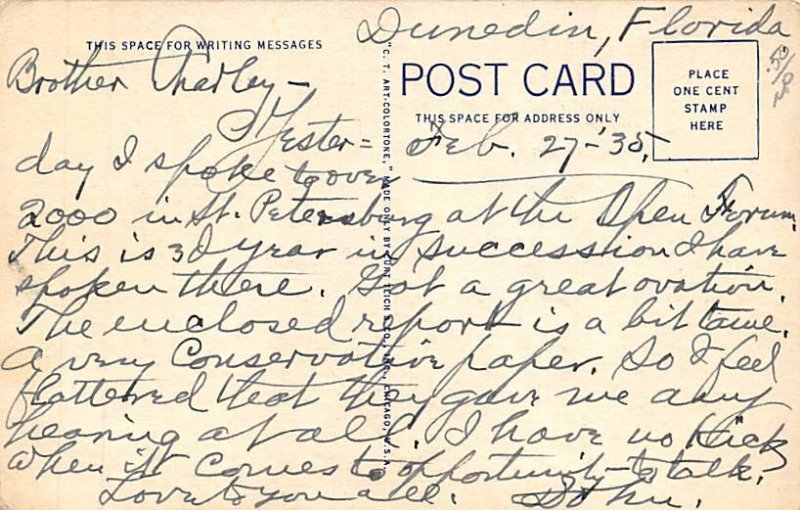 Dunedin, Florida
THIS SPACE FOR WRITING MESSAGES
Brother Charley –
POST CARD
PLACE
ONE CENT
STAMP
HERE
THIS SPACE FOR ADDRESS ONLY
Yester=
Feb. 27-'35,
day I spoke to over
2000 in St. Petersburg at the Open Forum.
This is 3d year in succession I have
spoken there. Got a great ovation.
The enclosed report is a bit tame.
A very Conservative paper. So I feel
flattered that they gave me any
hearing at all. I have no "Kick"
when it comes to opportunity – to talk.
Love to you all. John.
"C. T. ART-COLORTONE," MADE ONLY BY CURT TEICH & CO., INC., CHICAGO, U.S.A.
.50